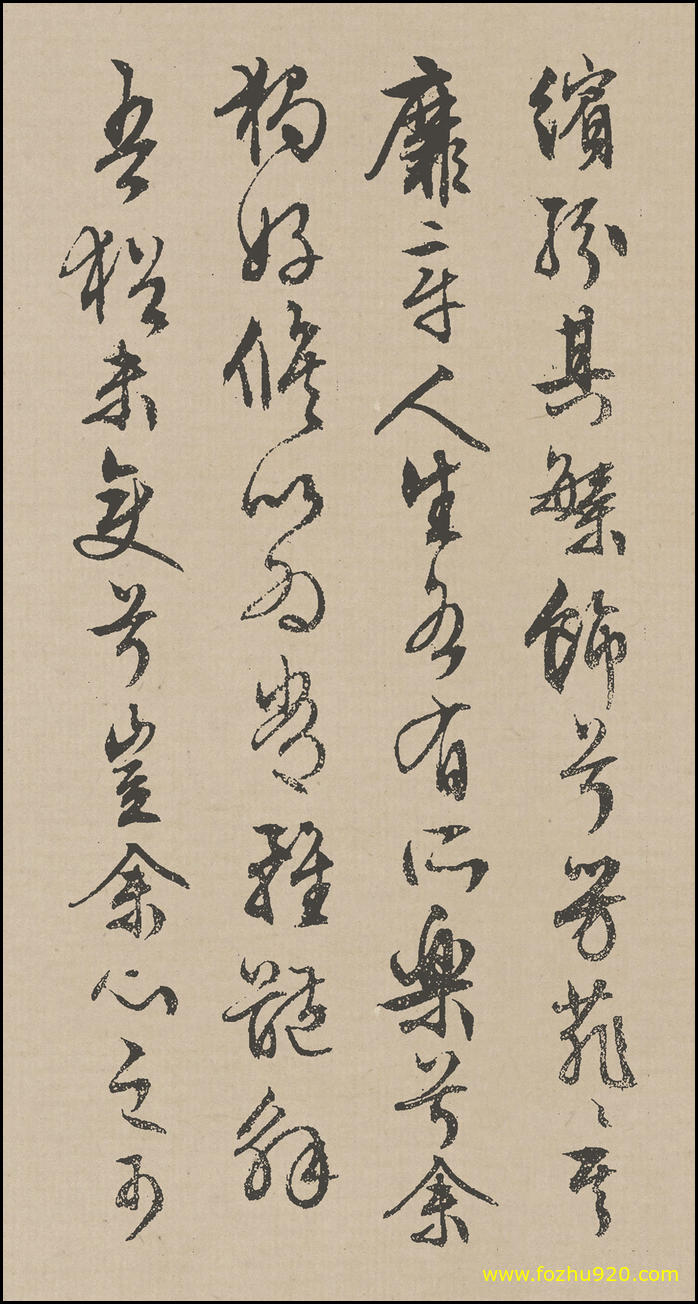 繽紛其繁飾兮芳菲〻其
靡章人生各有所樂兮余
獨好脩以為常雖體解
吾猶未變兮豈余心之可
www.fozhu920.com